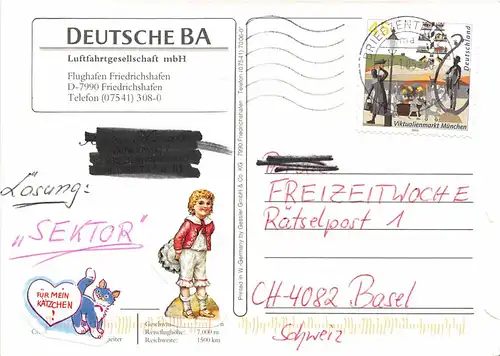 DEUTSCHE BA
Luftfahrtgesellschaft mbH
Flughafen Friedrichshafen
D-7990 Friedrichshafen
Telefon (07541) 308-0
Lösung:
„SEKTOR"
FÜR MEIN
KÄTZCHEN
!
Reiseflughöhe: 7.000 m
Reichweite: 1500 km
Printed in W.-Germany by Gessler GmbH & Co. KG · 7990 Friedrichshafen · Telefon (07541) 7006-0
BRIEFZENTRUM
Deutschland
Viktualienmarkt München
FREIZEITWOCHE
Rätselpost 1
CH-4082 Basel
Schweiz